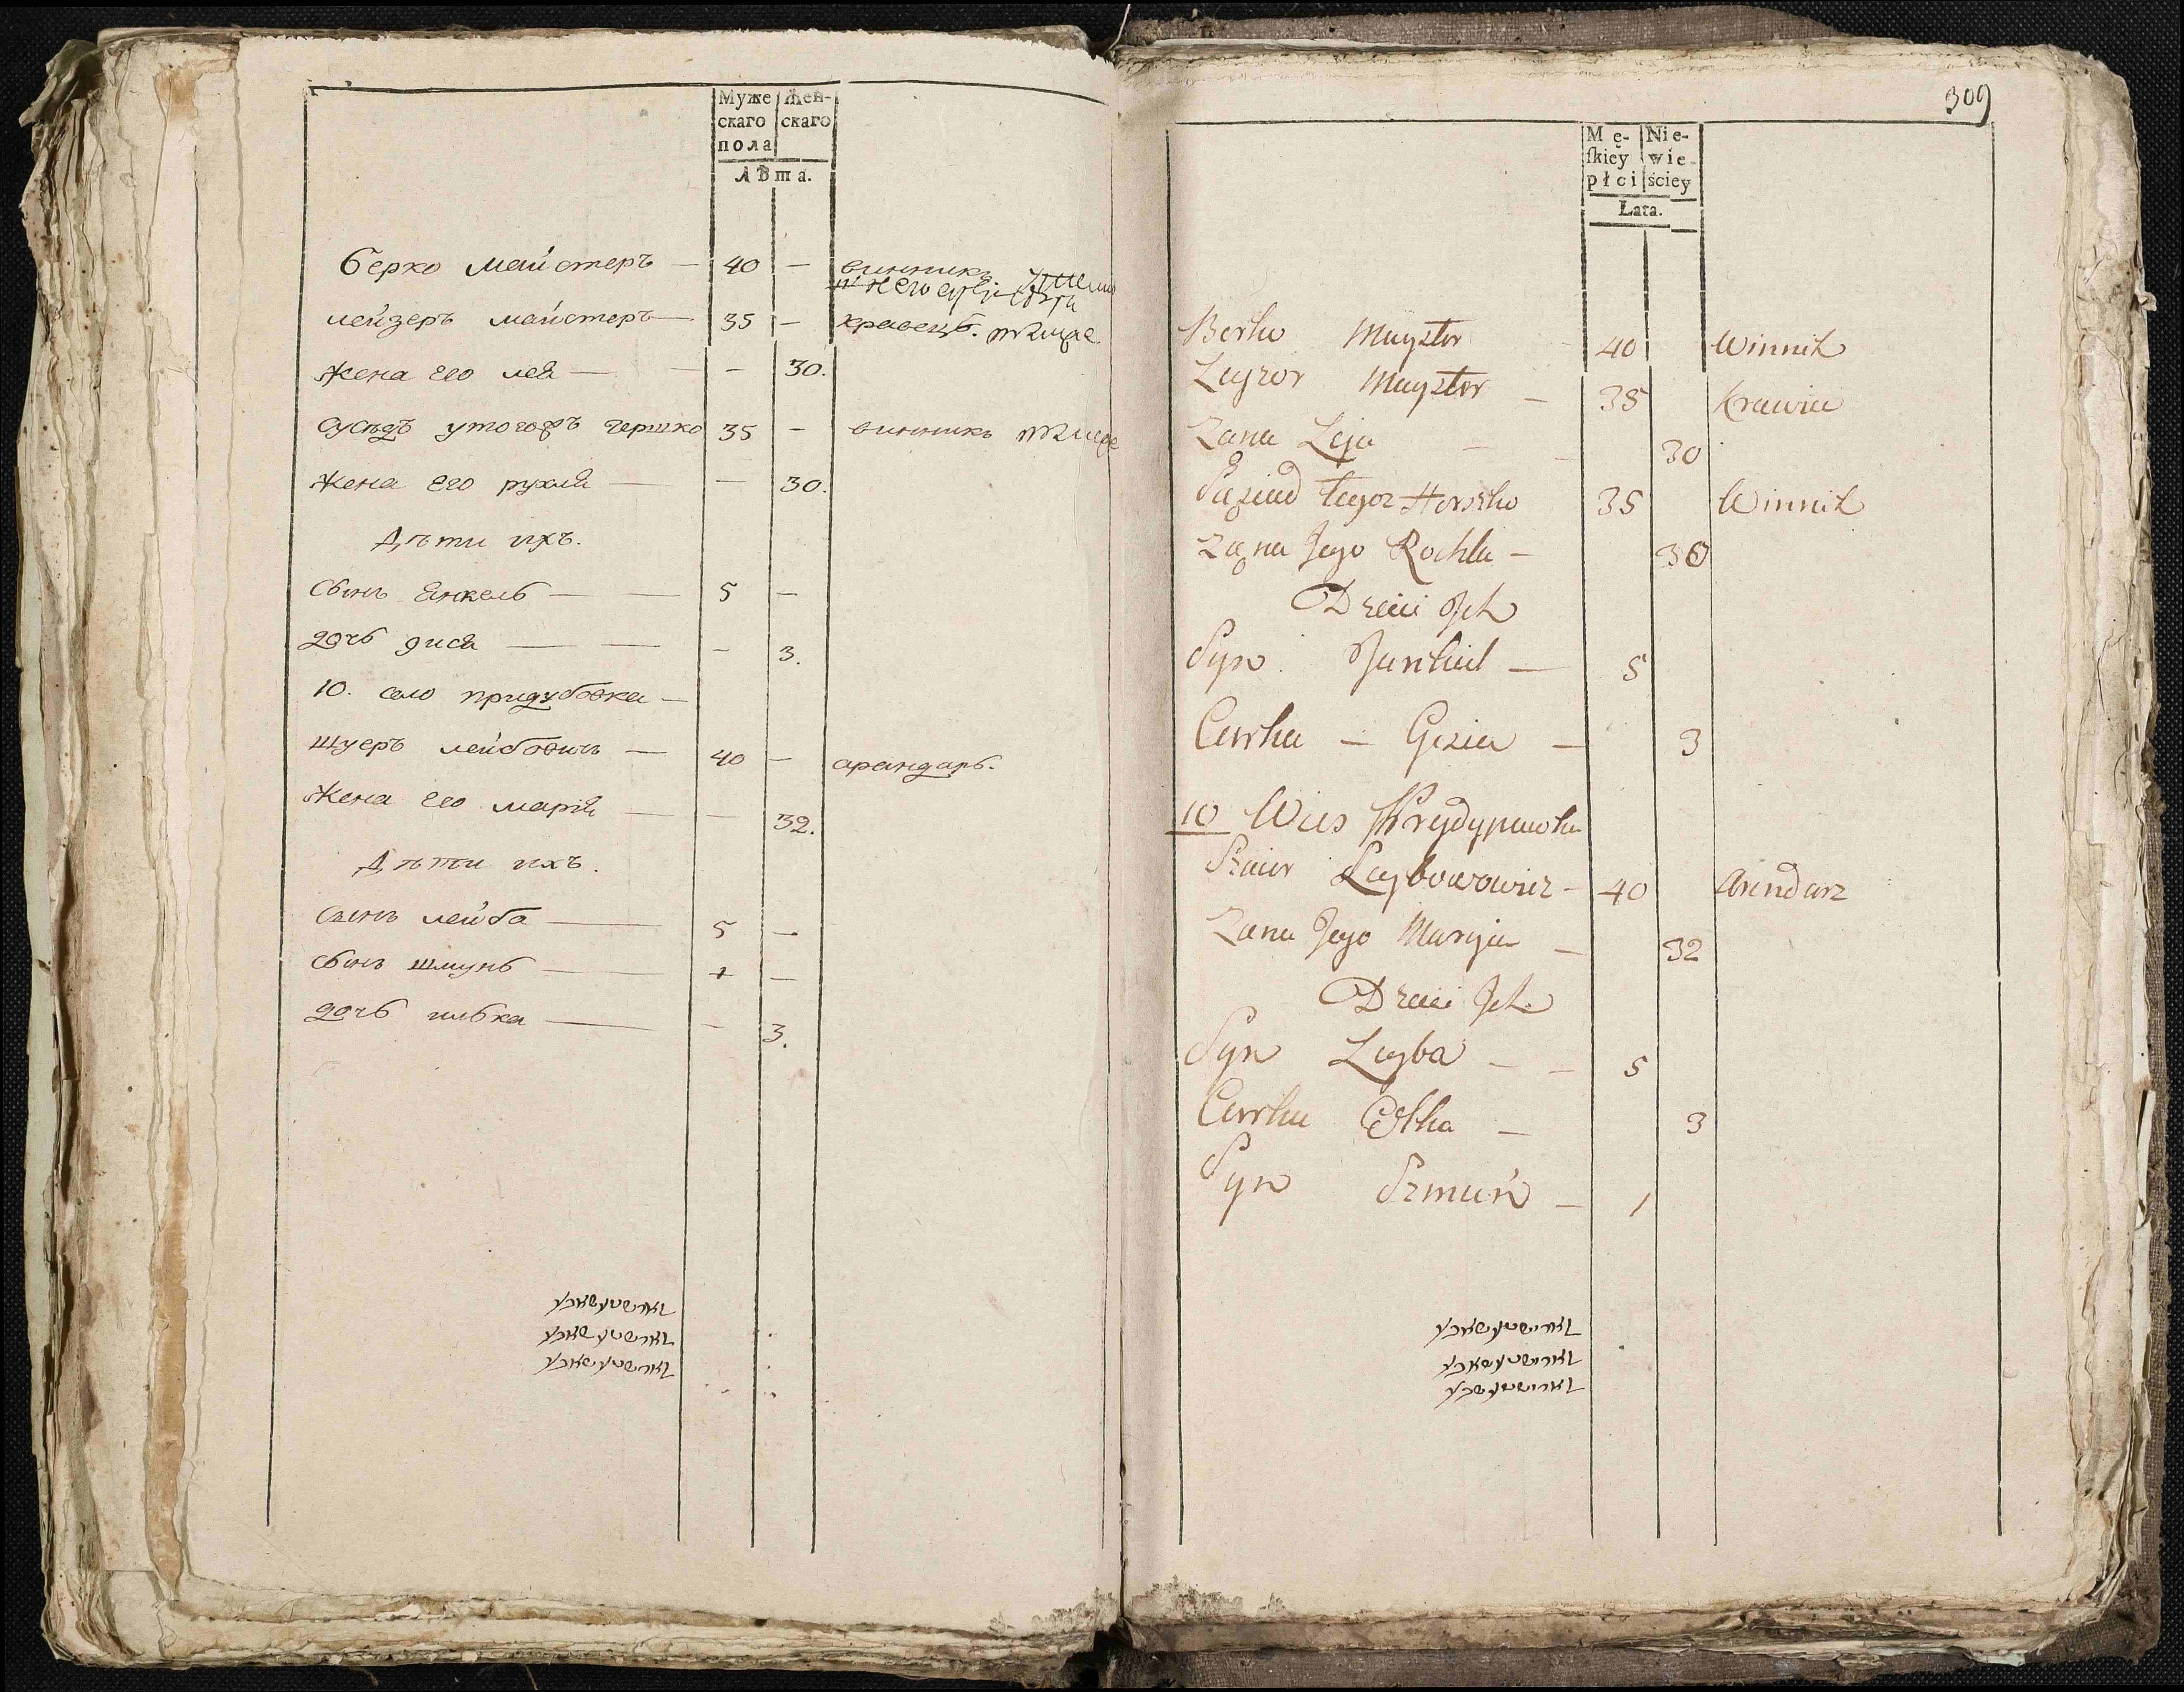 Муже Жен-
скаго скаго
пола
Лѣта.
Берко майстеръ — 40 — винникъ
лейзеръ майстеръ — 35 — кравецъ.
Жена его лея — — 30.
сусѣдъ утогожъ гершко 35 — винникъ
Жена его рухля — — 30.
Дѣти ихъ.
сынъ янкель — — 5 —
дочь гися — — - 3.
10. село придубовка —
шуеръ лейбовичъ — 40 — арандарь.
Жена его марія — — 32.
Дѣти ихъ.
сынъ лейба — 5 —
сынъ шмунь — 1 —
дочь илька — - 3.
309
Mę- Nie-
ſkiey wie-
płci ściey
Lata.
Berko Mayster 40 Winnik
Layzor Mayster — 35 Krawiec
Zana Leja — 30
Sąsiad tegoz Herszko 35 Winnik
Zana Jego Rochla — 30
Dzieci Jch
Syn Jankiel — 5
Curka — Gisia — 3
10 Wies Prydypuwka
Szmer Leybowowicz — 40 Arendarz
Zana Jego Maryia — 32
Dzieci Jch
Syn Leyba — — 5
Curka Elka — 3
Syn Szmuń — 1